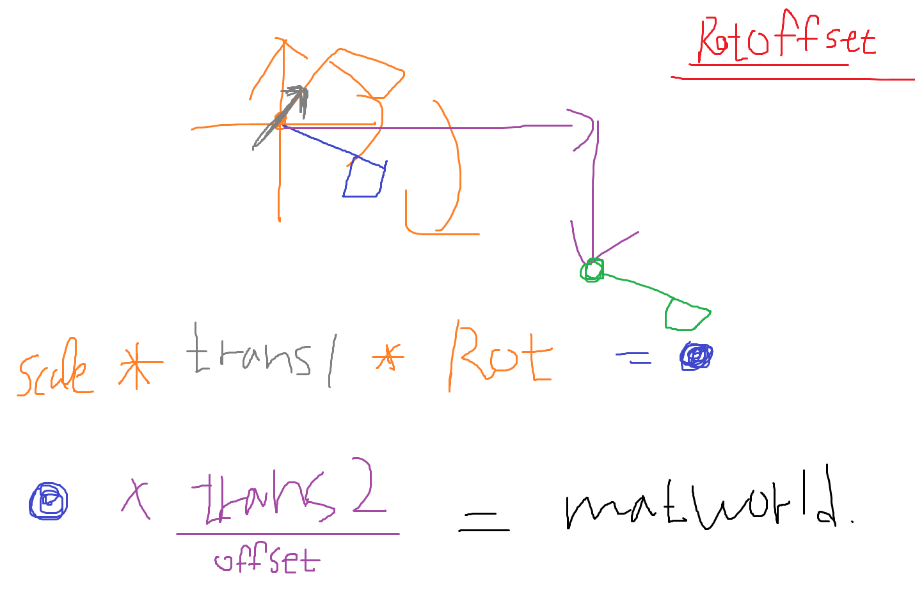 Rotoffset
scale * trans1 * Rot =
x trans2 = matworld.
offset